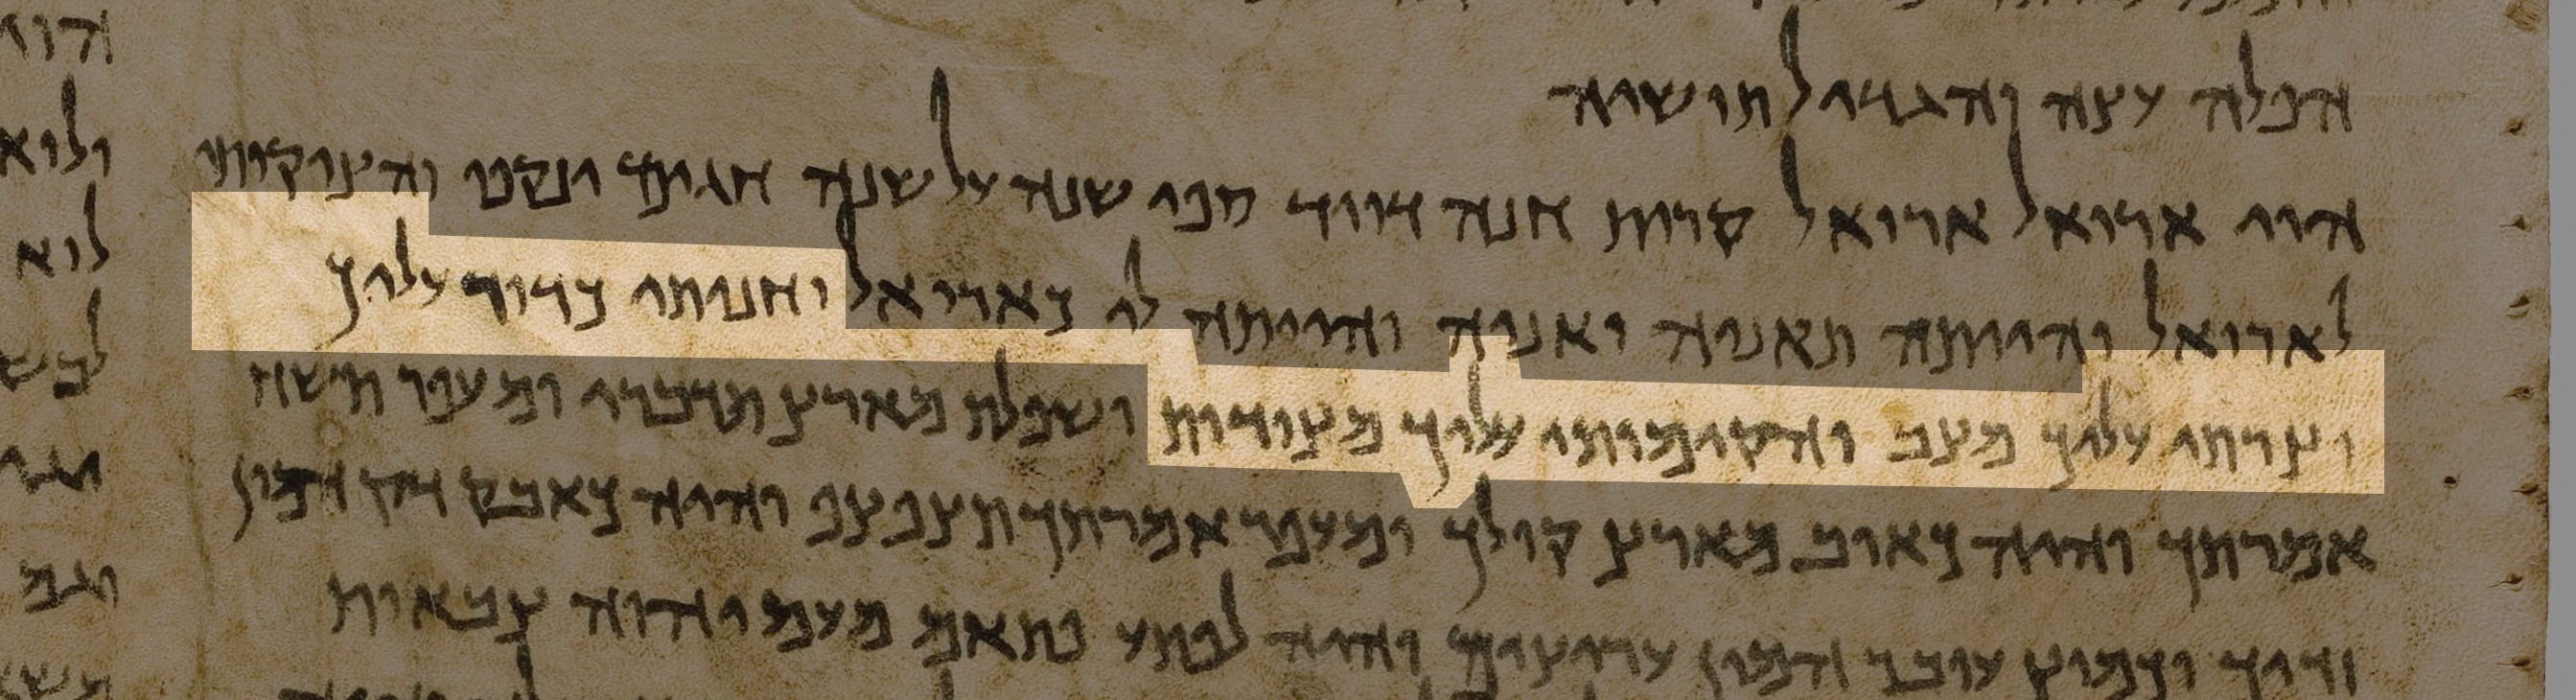 הפלה עצה והגדיל תושיה
הוי ארואל ארואל קרית חנה דויד ספי שנה על שנה חגים ינקפו והציקותי
לארואל והייתה תאניה ואניה והייתה לי כארואל וחניתי כדור עליך
וצרתי עליך מצב והקימותי עליך מצודות ושפלת מארץ תדברי ומעפר תישח
אמרתך והיה כאוב מארץ קולך ומעפר אמרתך תצפצף והיה כאבק דק המון
זדיך וכמוץ עובר המון עריצים והיה לפתע פתאם מעם יהוה צבאות